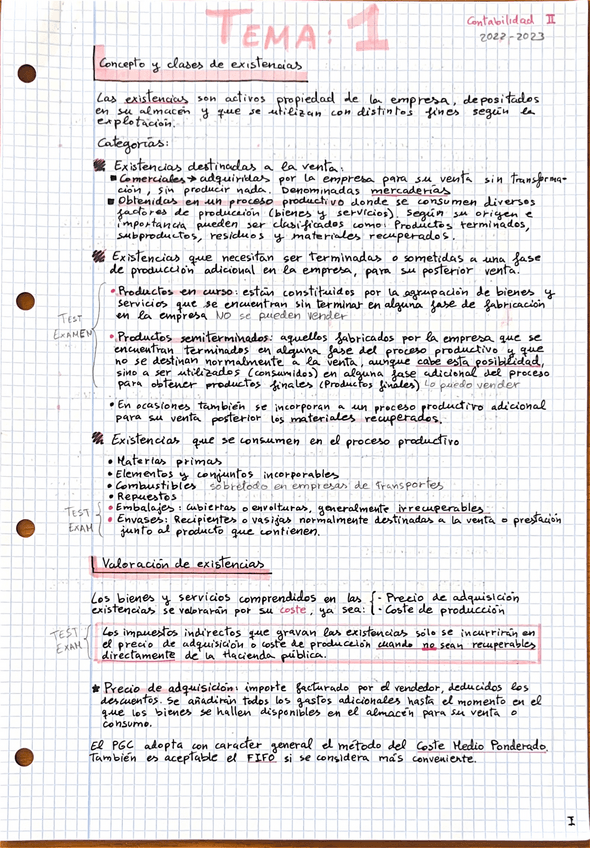 TEMA: 1
Contabilidad II
2022-2023
Concepto y clases de existencias
Las existencias son activos propiedad de la empresa, depositados
en su almacén y que se utilizan con distintos fines según la
explotación.
Categorías:
Existencias destinadas a la venta.
Comerciales → adquiridas por la empresa para su venta sin transforma-
ción, sin producir nada. Denominadas mercaderías
Obtenidas en un proceso productivo donde se consumen diversos
factores de producción (bienes y servicios). Según su origen e
importancia pueden ser clasificados como: Productos terminados,
subproductos, residuos y materiales recuperados.
Existencias que necesitan ser terminadas o sometidas a una fase
de producción adicional en la empresa, para su posterior venta.
• Productos en curso: están constituidos por la agrupación de bienes y
servicios que se encuentran sin terminar en alguna fase de fabricación
en la empresa NO se pueden vender
TEST
EXAMEN
• Productos semiterminados: aquellos fabricados por la empresa que se
encuentran terminados en alguna fase del proceso productivo y que
no se destinan normalmente a la venta, aunque cabe esta posibilidad,
sino a ser utilizados (consumidos) en alguna fase adicional del proceso
para obtener productos finales (Productos finales) Lo puedo vender
• En ocasiones también se incorporan a un proceso productivo adicional
para su venta posterior los materiales recuperados.
Existencias que se consumen en el proceso productivo
• Materias primas
• Elementos y conjuntos incorporables
• Combustibles sobretodo en empresas de transportes
• Repuestos
• Embalajes: cubiertas o envolturas, generalmente irrecuperables
• Envases: Recipientes o vasijas normalmente destinadas a la venta o prestación
junto al producto que contienen.
TEST
EXAM
Valoración de existencias
Los bienes y servicios comprendidos en las { - Precio de adquisición
existencias se valorarán por su coste, ya sea: { - Coste de producción
TEST
EXAM
Los impuestos indirectos que gravan las existencias sólo se incurrirán en
el precio de adquisición o coste de producción cuando no sean recuperables
directamente de la Hacienda pública.
★ Precio de adquisición: importe facturado por el vendedor, deducidos los
descuentos. Se añadirán todos los gastos adicionales hasta el momento en el
que los bienes se hallen disponibles en el almacén para su venta o
consumo.
El PGC adopta con caracter general el método del Coste Medio Ponderado.
También es aceptable el FIFO si se considera más conveniente.
I